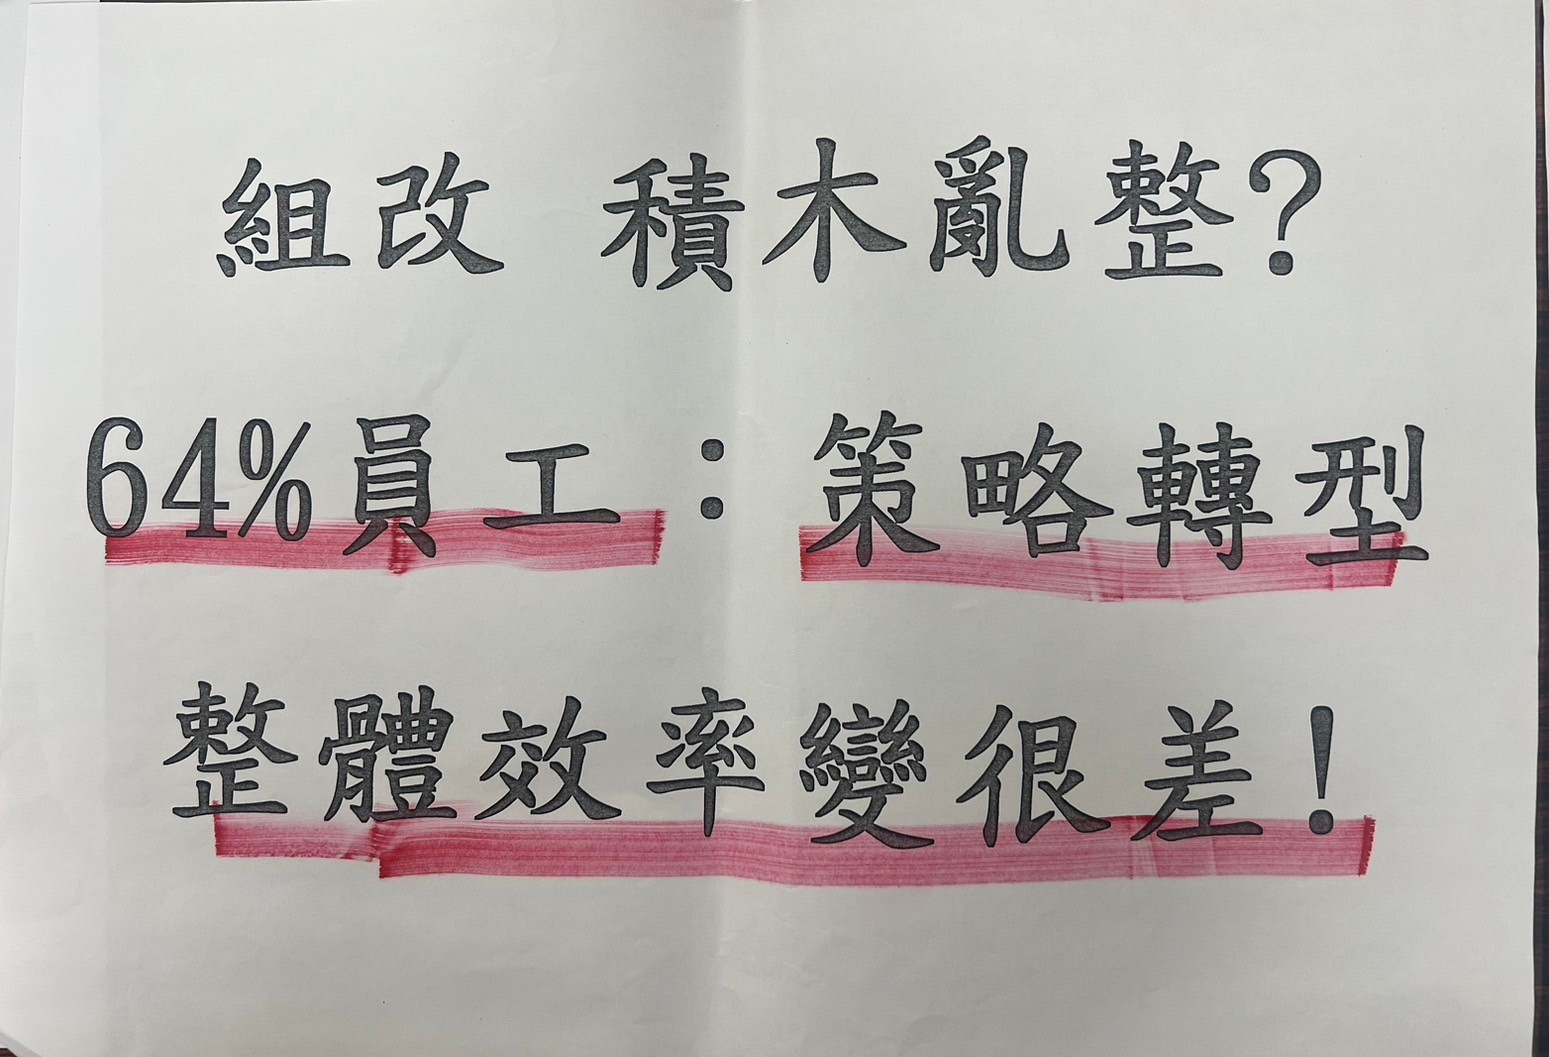 組改 積木亂整?
64%員工：策略轉型
整體效率變很差!